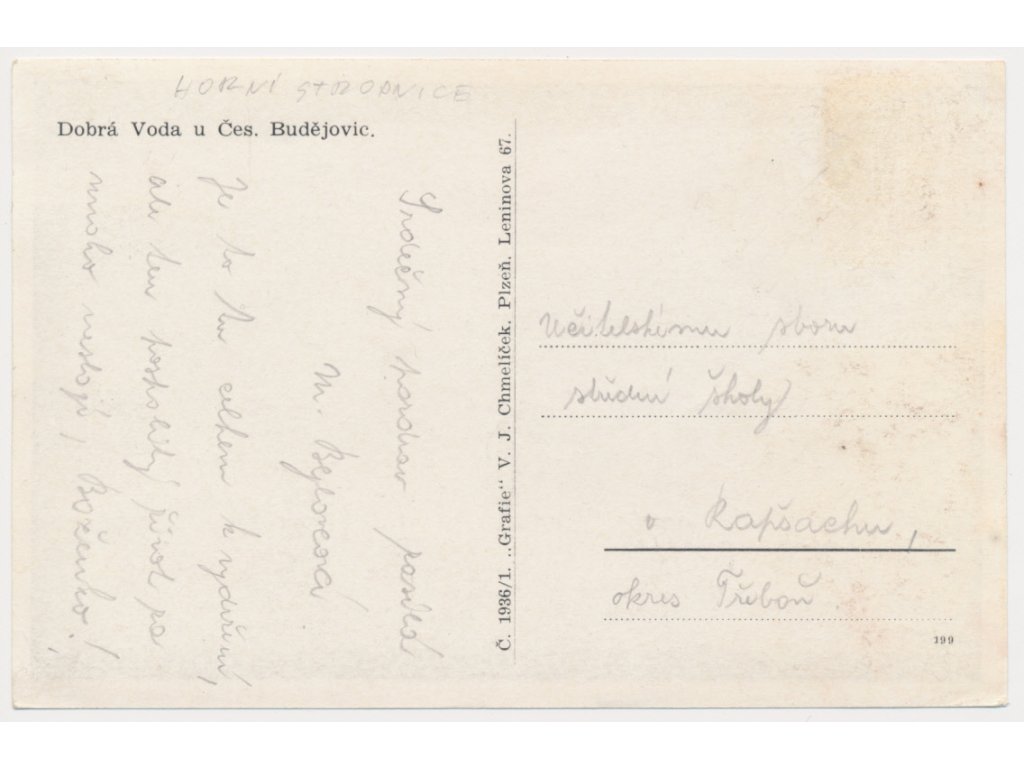 HORNÍ STROPNICE
Dobrá Voda u Čes. Budějovic.
Srdečný pozdrav posílá
M. Býlovcová
Je to tu celkem k vydržení,
ale ten postelový život za
mnoho nestojí, Boženko!
Č. 1936/1. „Grafie" V. J. Chmelíček. Plzeň, Leninova 67.
Učitelskému sboru
střední školy
v Rapšachu,
okres Třeboň
199